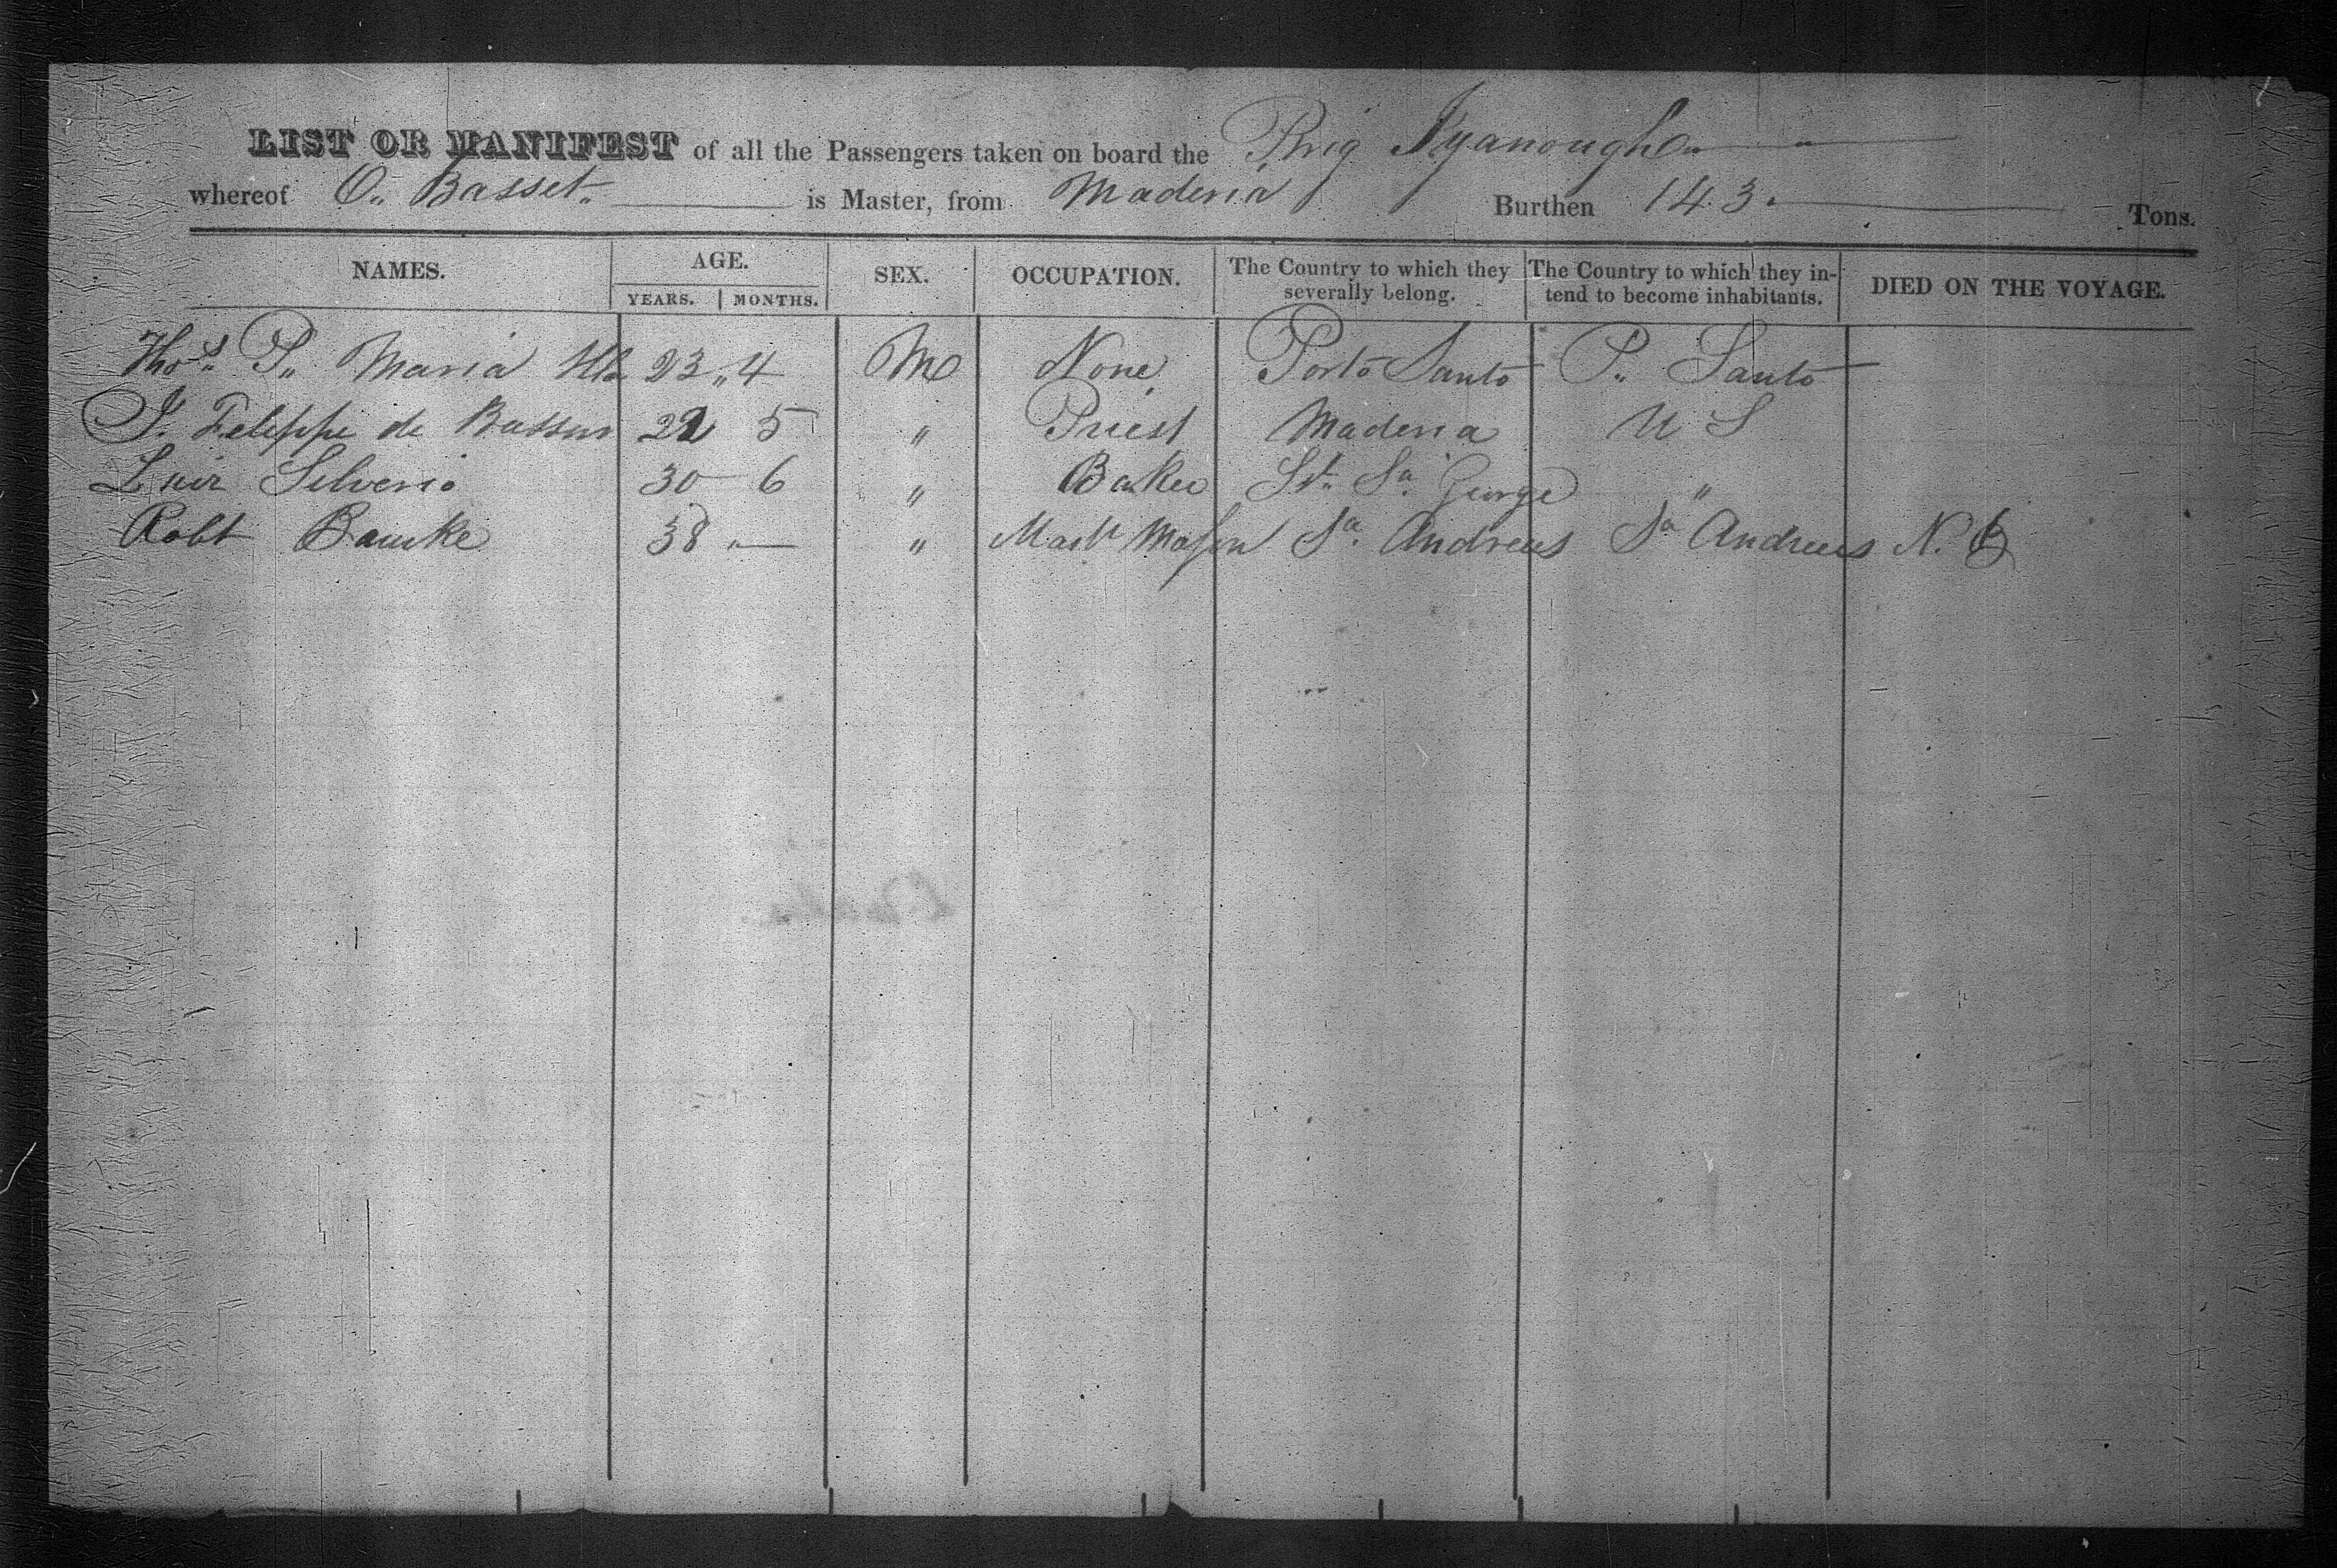 LIST OR MANIFEST of all the Passengers taken on board the Brig Iyanough
whereof O. Basset is Master, from Maderia Burthen 143. Tons.
NAMES. AGE. SEX. OCCUPATION. The Country to which they severally belong. The Country to which they intend to become inhabitants. DIED ON THE VOYAGE.
YEARS. MONTHS.
Thos P. Maria 23 „ 4 M None Porto Santo P. Santo
J. Feleppe de 22 5 " Priest Maderia U S
Luiz Silverio 30 - 6 " Baker St. Sa George "
Robt 38 „ — " Mason Sa Andrews Sa Andrews N. B